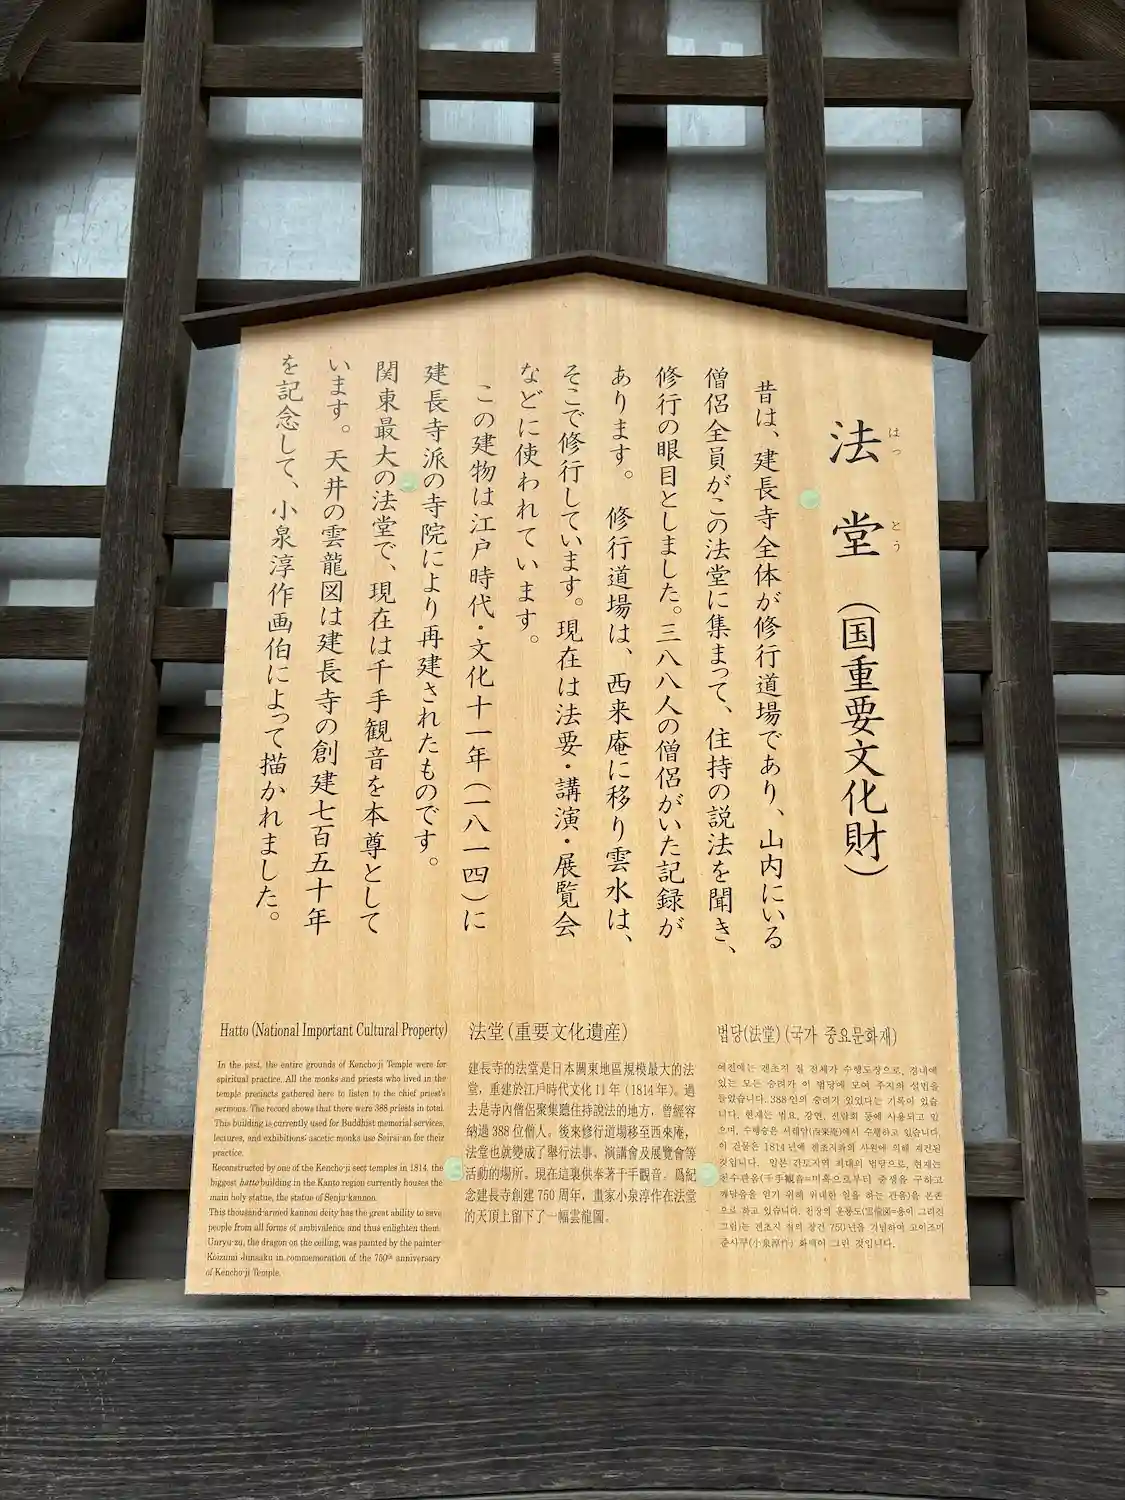 法堂（国重要文化財）
はっとう
昔は、建長寺全体が修行道場であり、山内にいる
僧侶全員がこの法堂に集まって、住持の説法を聞き、
修行の眼目としました。三八八人の僧侶がいた記録が
あります。修行道場は、西来庵に移り雲水は、
そこで修行しています。現在は法要・講演・展覧会
などに使われています。
この建物は江戸時代・文化十一年（一八一四）に
建長寺派の寺院により再建されたものです。
関東最大の法堂で、現在は千手観音を本尊として
います。天井の雲龍図は建長寺の創建七百五十年
を記念して、小泉淳作画伯によって描かれました。
Hatto (National Important Cultural Property)
In the past, the entire grounds of Kencho-ji Temple were for
spiritual practice. All the monks and priests who lived in the
temple precincts gathered here to listen to the chief priest's
sermons. The record shows that there were 388 priests in total.
This building is currently used for Buddhist memorial services,
lectures, and exhibitions: ascetic monks use Seirai-an for their
practice.
Reconstructed by one of the Kencho-ji sect temples in 1814, the
biggest hatto building in the Kanto region currently houses the
main holy statue, the statue of Senju-kannon.
This thousand-armed kannon deity has the great ability to save
people from all forms of ambivalence and thus enlighten them.
Unryu-zu, the dragon on the ceiling, was painted by the painter
Koizumi Junsaku in commemoration of the 750th anniversary
of Kencho-ji Temple.
法堂（重要文化遺産）
建長寺的法堂是日本關東地區規模最大的法
堂，重建於江戶時代文化 11 年（1814 年）。過
去是寺內僧侶聚集聽住持說法的地方，曾經容
納過 388 位僧人。後來修行道場移至西來庵，
法堂也就變成了舉行法事、演講會及展覽會等
活動的場所。現在這裏供奉著千手觀音。爲紀
念建長寺創建 750 周年，畫家小泉淳作在法堂
的天頂上留下了一幅雲龍圖。
법당(法堂) (국가 중요문화재)
예전에는 겐초지 절 전체가 수행도장으로, 경내에
있는 모든 승려가 이 법당에 모여 주지의 설법을
들었습니다. 388 인의 승려가 있었다는 기록이 있습
니다. 현재는 법요, 강연, 전람회 등에 사용되고 있
으며, 수행승은 서래암(西來庵)에서 수행하고 있습니다.
이 건물은 1814 년에 겐초지파의 사원에 의해 재건된
것입니다. 일본 간토지역 최대의 법당으로, 현재는
천수관음(千手観音=미혹으로부터 중생을 구하고
깨달음을 얻기 위해 위대한 일을 하는 관음)을 본존
으로 하고 있습니다. 천장의 운룡도(雲龍図=용이 그려진
그림)는 겐초지 절의 창건 750 년을 기념하여 고이즈미
준사쿠(小泉淳作) 화백이 그린 것입니다.